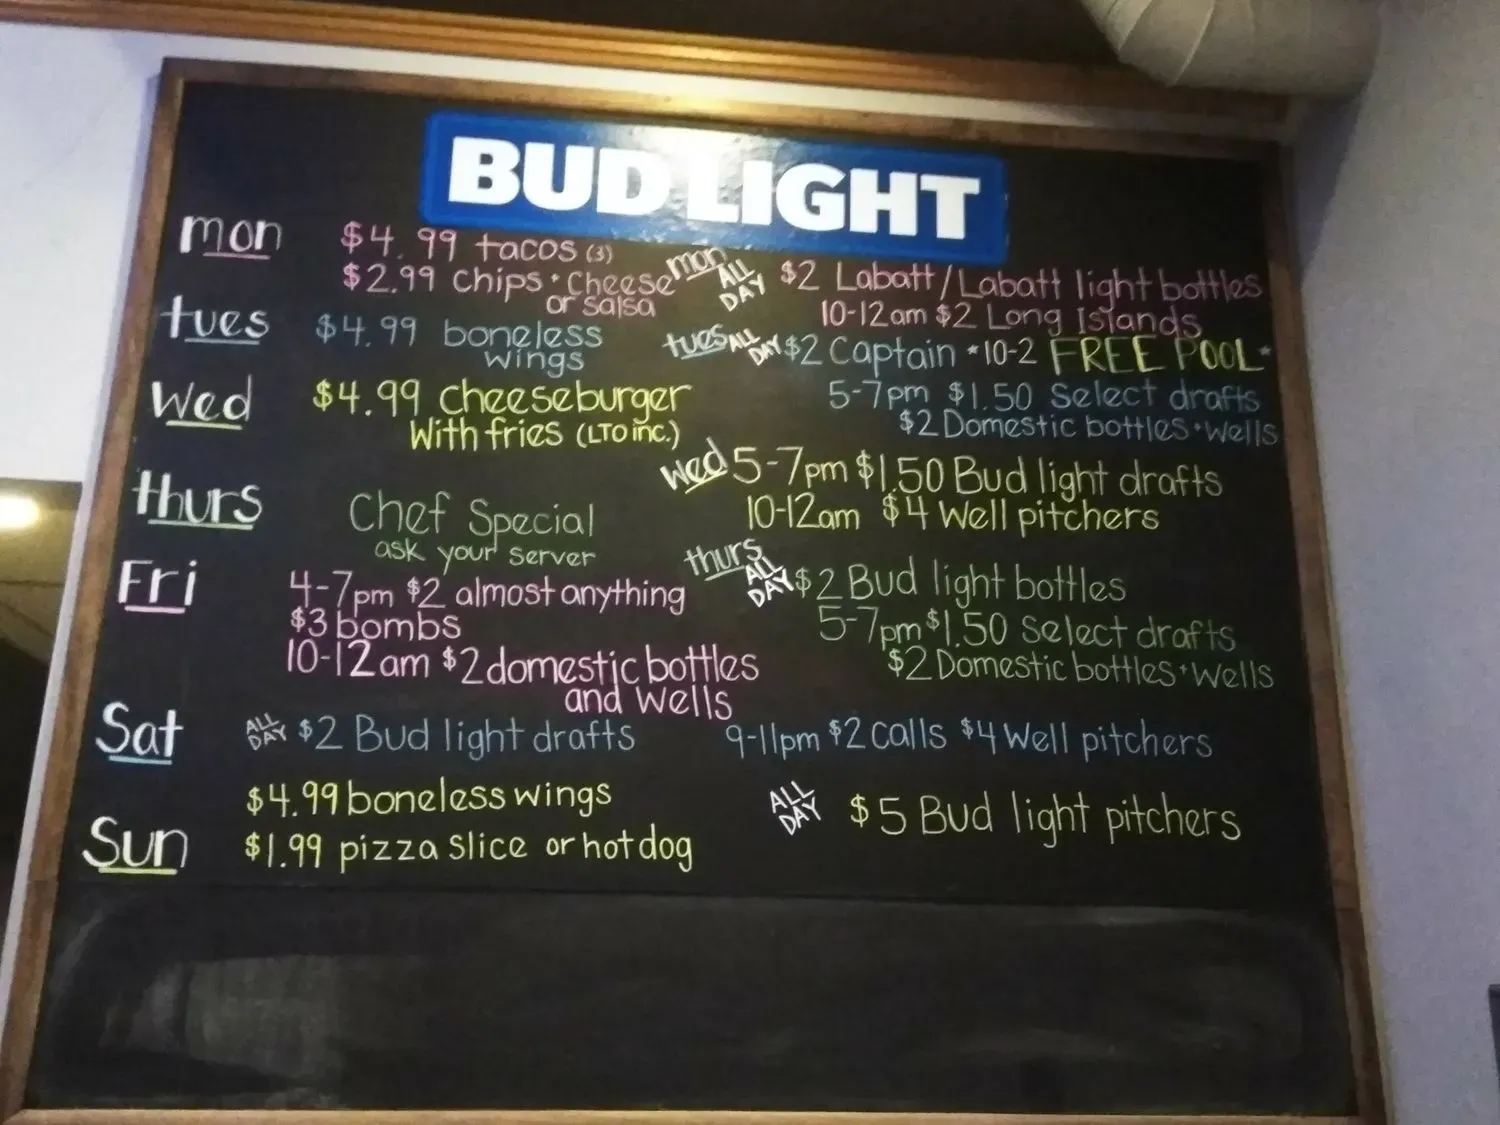 BUD LIGHT
mon
$4.99 tacos (3)
$2.99 chips + cheese
or salsa
mon ALL DAY $2 Labatt/Labatt light bottles
10-12am $2 Long Islands
tues
$4.99 boneless
wings
tues ALL DAY $2 Captain *10-2 FREE POOL*
5-7pm $1.50 Select drafts
$2 Domestic bottles + wells
Wed
$4.99 cheeseburger
With fries (LTO inc.)
Wed 5-7pm $1.50 Bud light drafts
10-12am $4 Well pitchers
thurs
Chef Special
ask your server
thurs ALL DAY $2 Bud light bottles
5-7pm $1.50 Select drafts
$2 Domestic bottles + wells
Fri
4-7pm $2 almost anything
$3 bombs
10-12am $2 domestic bottles
and wells
Sat
ALL DAY $2 Bud light drafts
9-11pm $2 calls $4 Well pitchers
Sun
$4.99 boneless wings
$1.99 pizza slice or hot dog
ALL DAY $5 Bud light pitchers